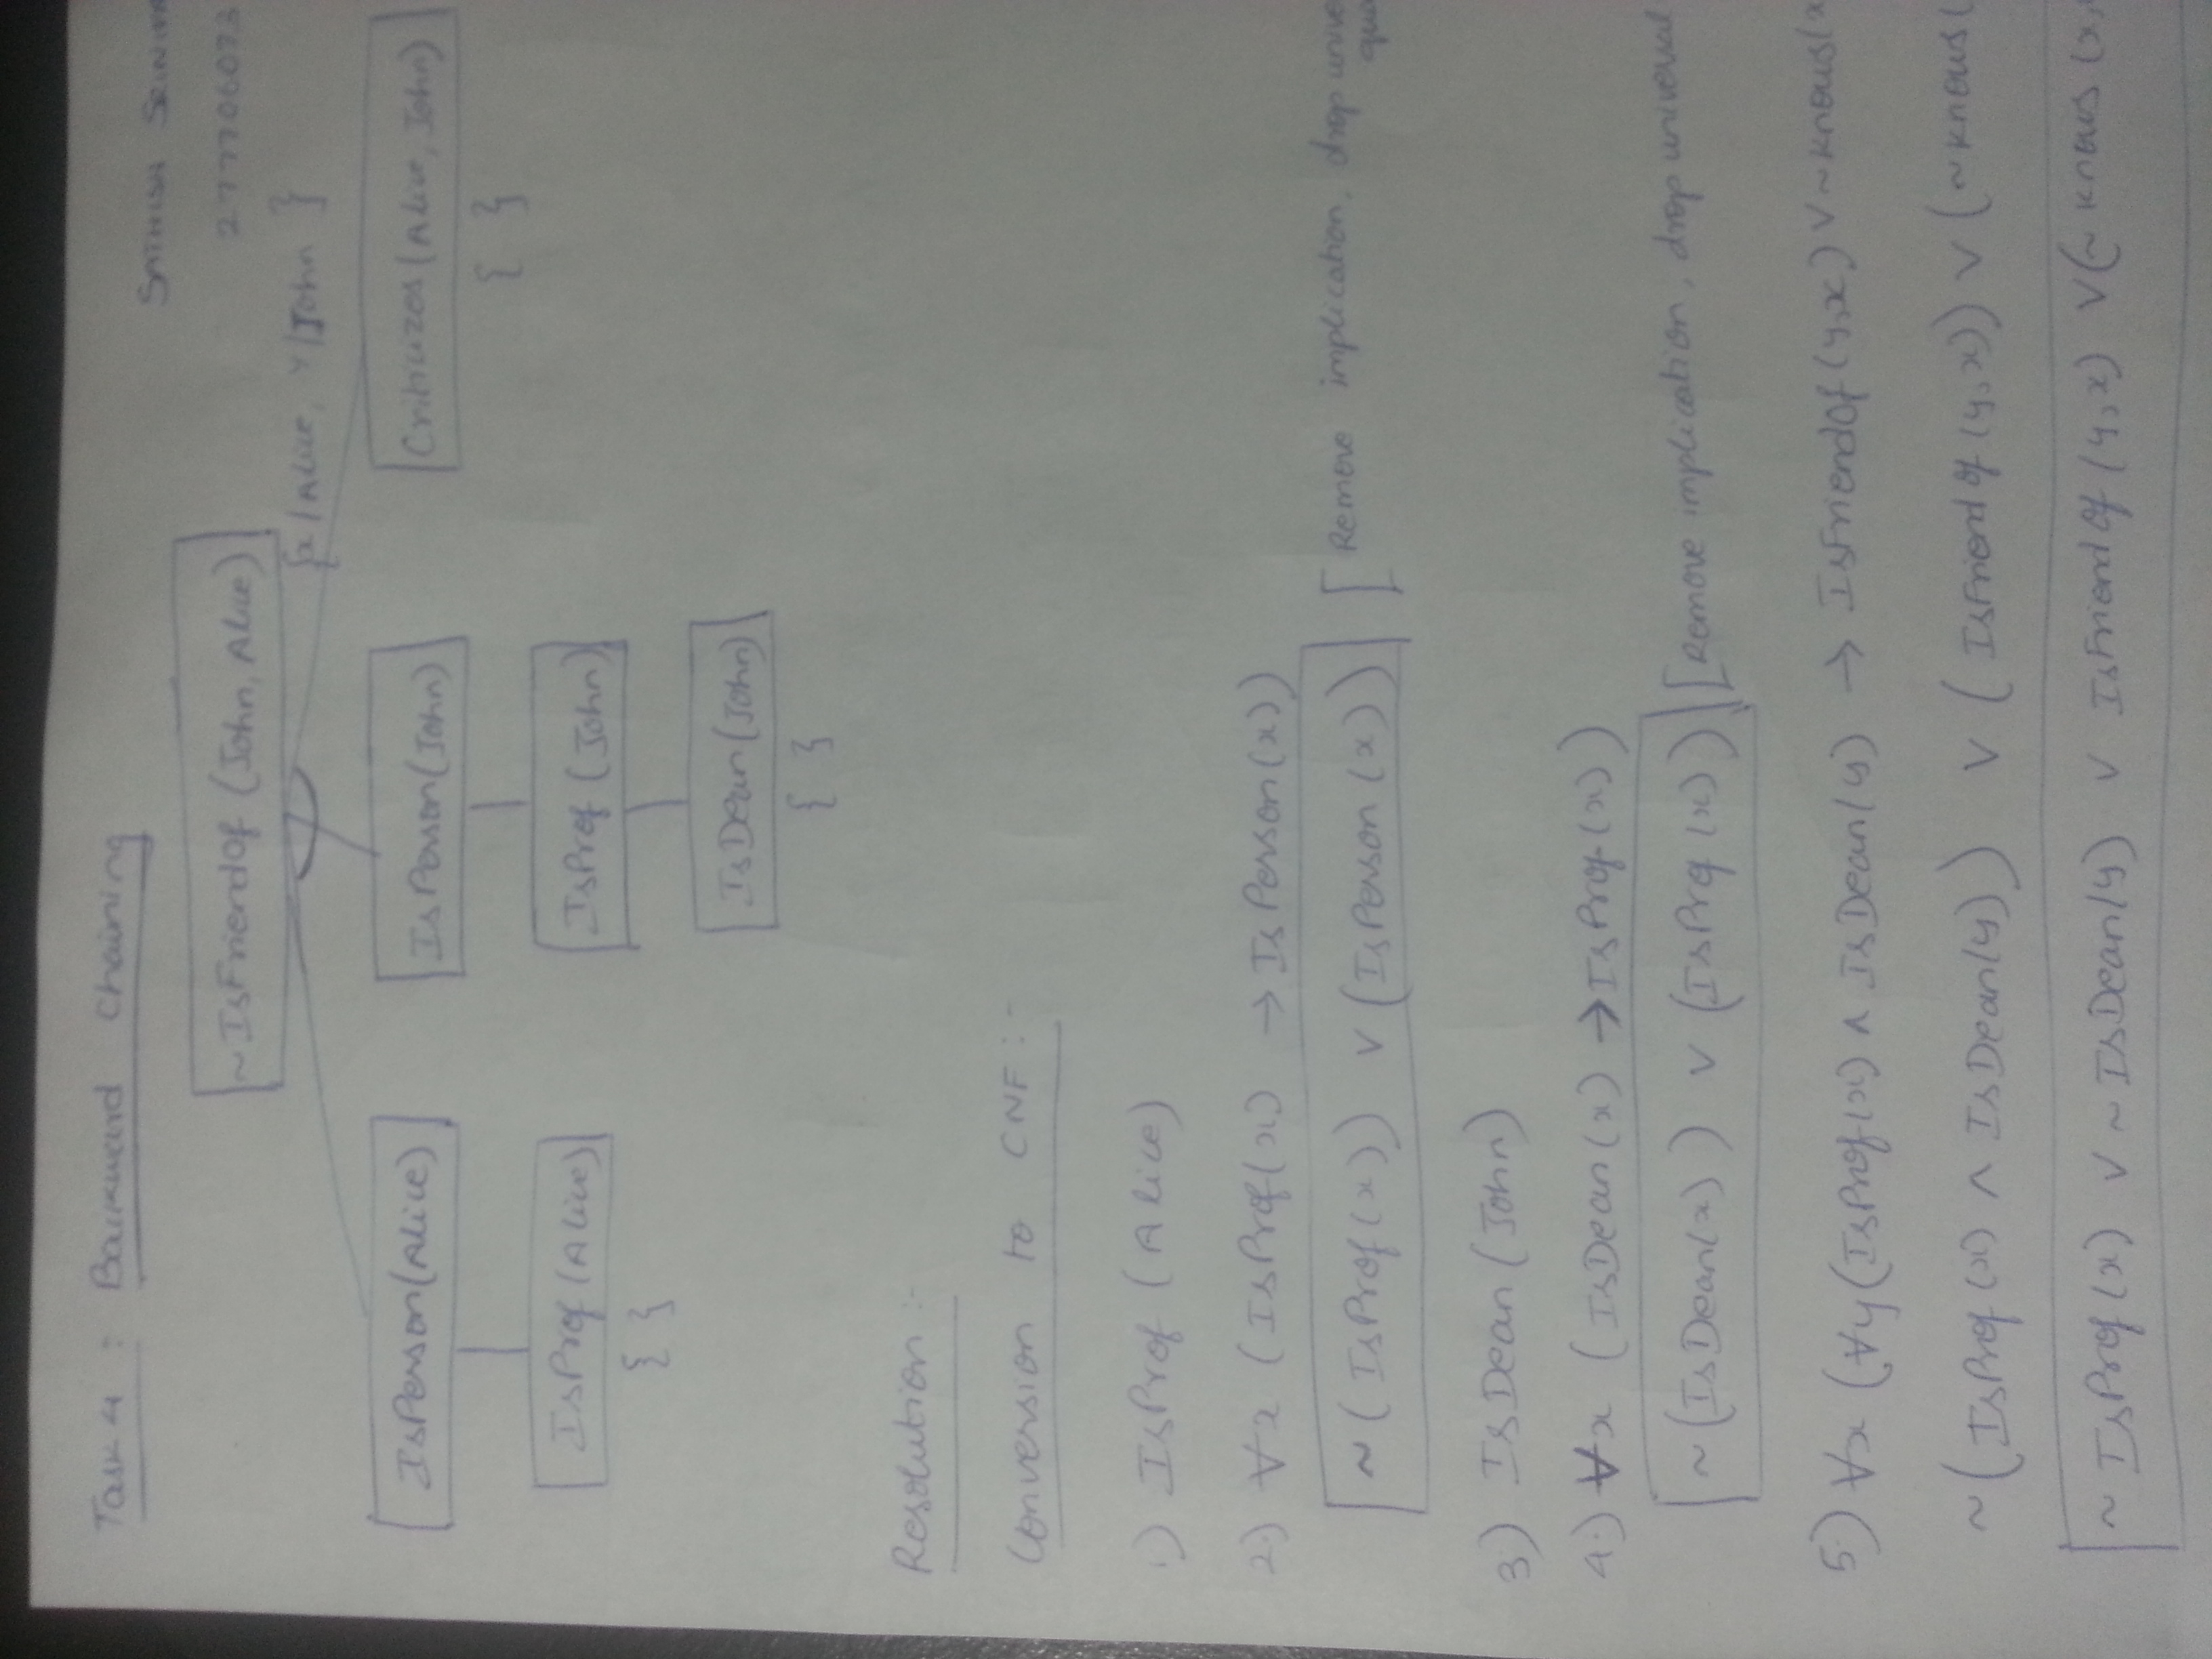 Task 4 : Backward Chaining
277706073
~IsFriendOf (John, Alice)
{x/Alice, y/John }
IsPerson(Alice) IsPerson(John) Criticizes(Alice, John)
{ }
IsProf (Alice) IsProf (John)
{ }
IsDean(John)
{ }
Resolution:-
Conversion to CNF:-
1) IsProf (Alice)
2.) ∀x (IsProf(x) → IsPerson(x))
~ (IsProf(x)) ∨ (IsPerson (x)) [Remove implication, drop
3) IsDean (John)
4.) ∀x (IsDean(x) → IsProf(x))
~ (IsDean(x)) ∨ (IsProf (x)) [Remove implication, drop universal
5.) ∀x (∀y(IsProf(x) ∧ IsDean(y) → IsFriendOf (y,x) ∨ ~knows(x
~ (IsProf(x) ∧ IsDean(y)) ∨ (IsFriendOf (y,x)) ∨ (~knows(
~ IsProf(x) ∨ ~ IsDean(y) ∨ IsFriendOf (y,x) ∨ (~ knows (x,